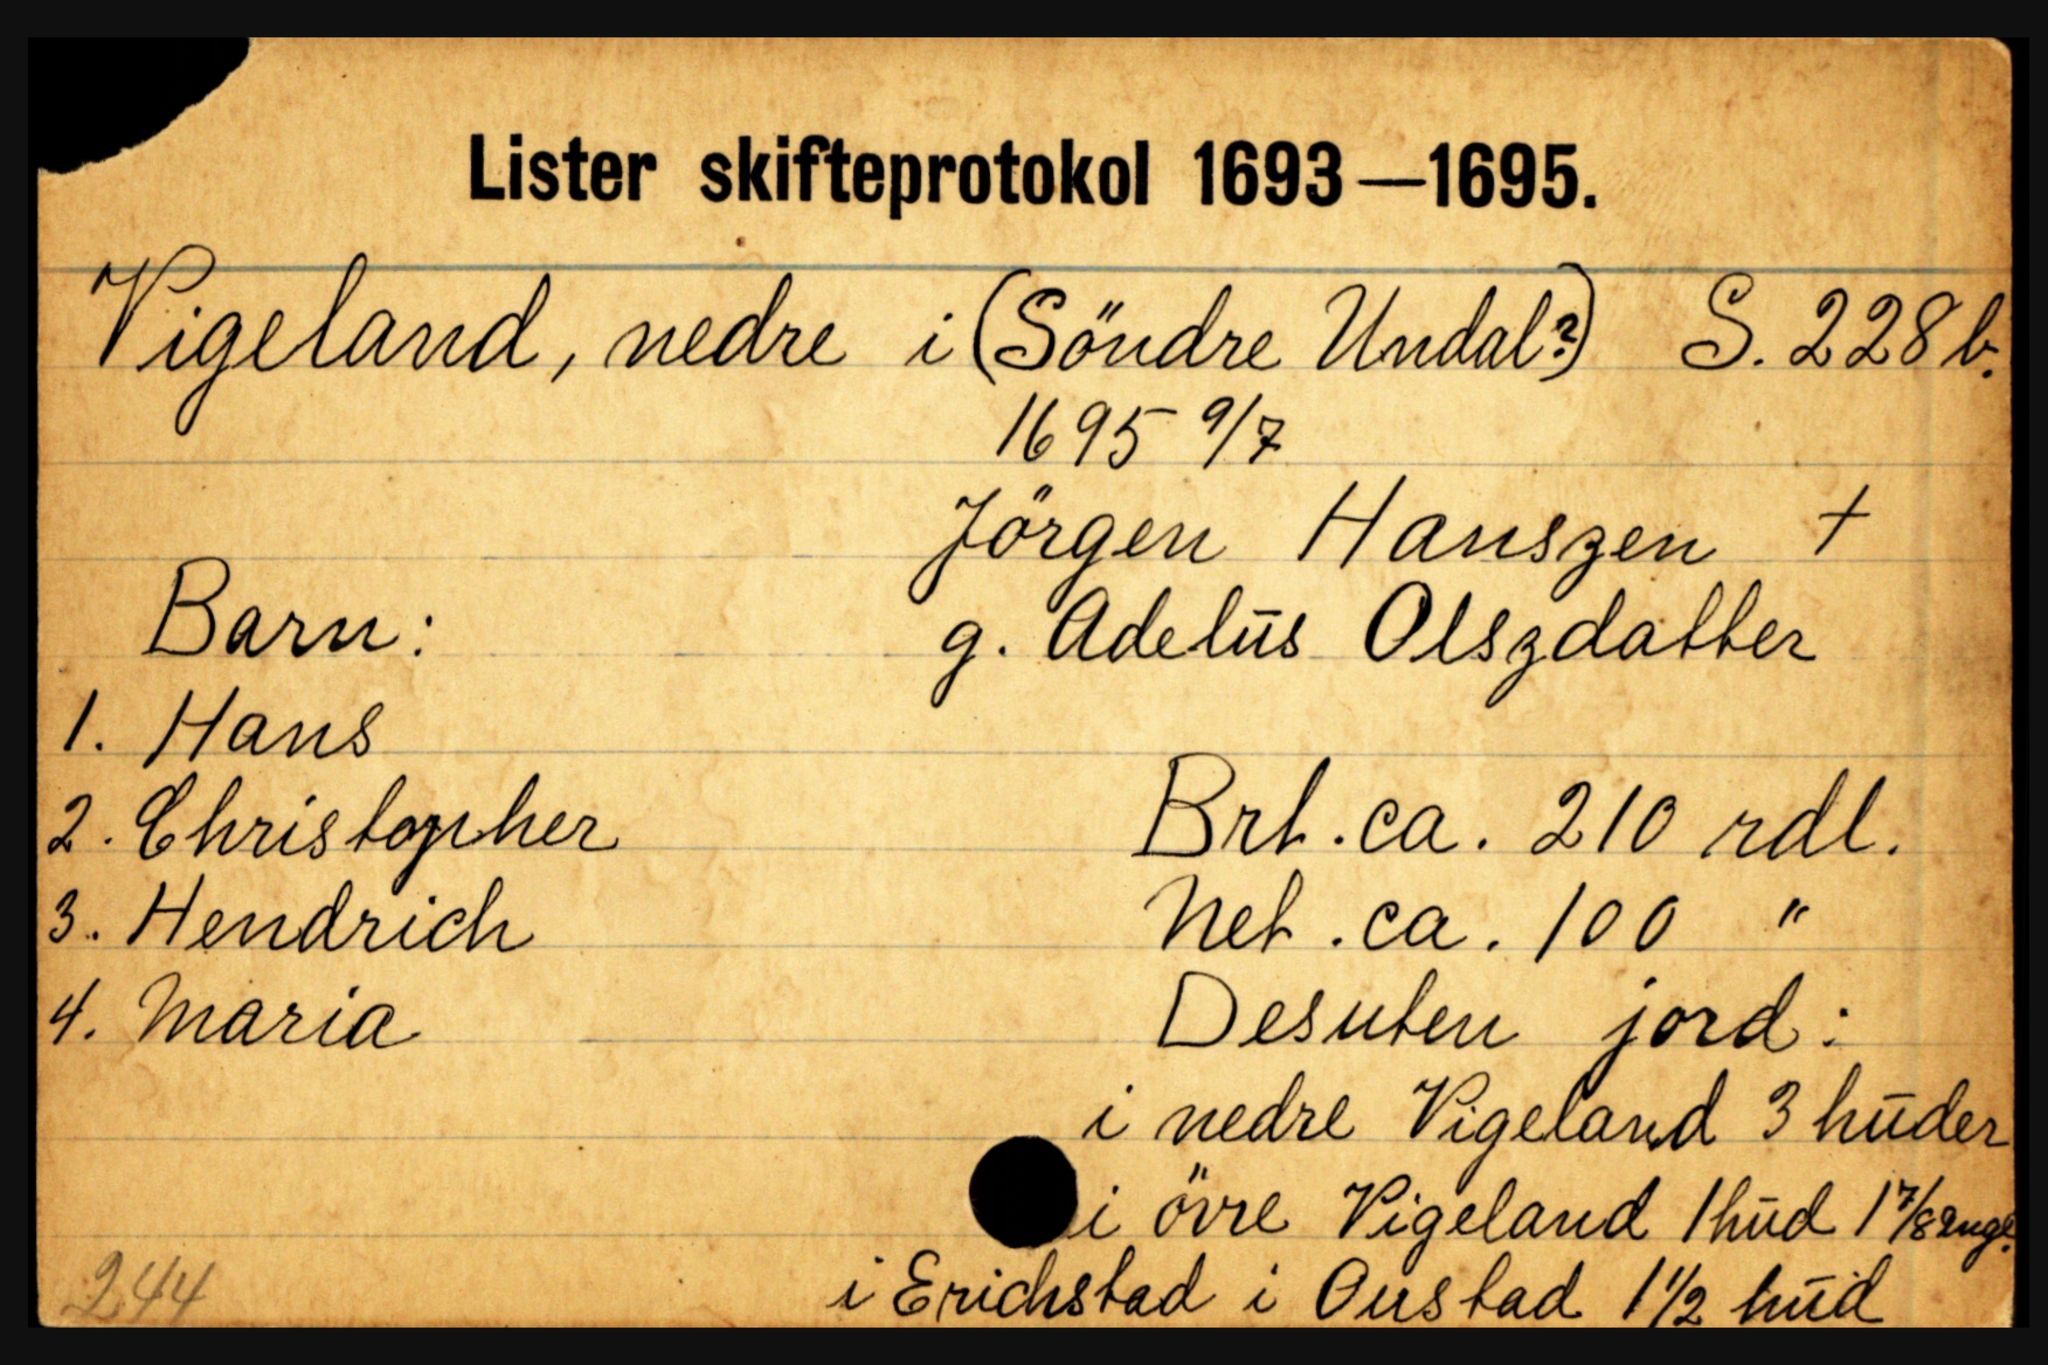 Lister skifteprotokol 1693—1695.
Vigeland, nedre i (Söndre Undal?) S. 228 b.
1695 9/7
Jörgen Hanszen †
Barn: g. Adelūs Olszdatter
1. Hans
2. Christopher Brt. ca. 210 rdl.
3. Hendrich Net. ca. 100 "
4. Maria Desuten jord:
i nedre Vigeland 3 hūder
i övre Vigeland 1 hūd 1 7/8 engl.
i Erichstad i Oustad 1 1/2 hūd
244